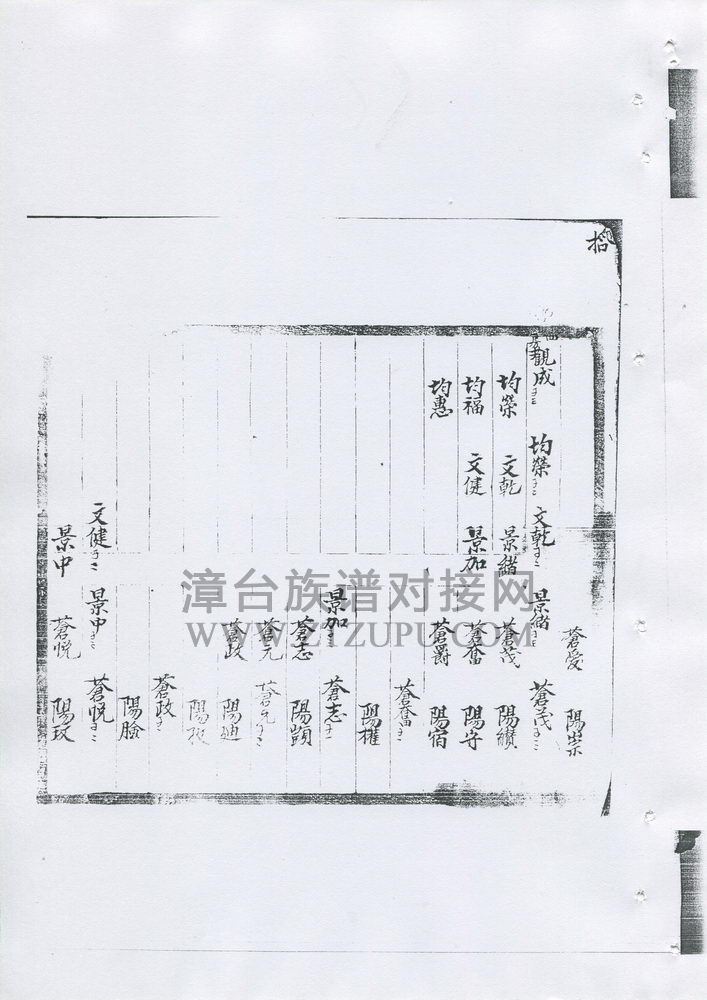 拾
蒼愛 陽崇
觀成 均榮 文乾 景緒 蒼茂
均榮 文乾 景緒 蒼茂 陽纘
均福 文健 景加 蒼奮 陽守
均惠 蒼爵 陽宿
蒼奮
陽權
景加 蒼志
蒼志 陽顗
蒼元 蒼元
蒼政 陽迪
陽
蒼政
陽臉
文健 景中 蒼悅
景中 蒼悅 陽玟
漳台族谱对接网
WWW.ZTZUPU.COM